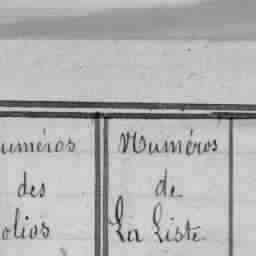 uméros
des
olios
Numéros
de
La Liste